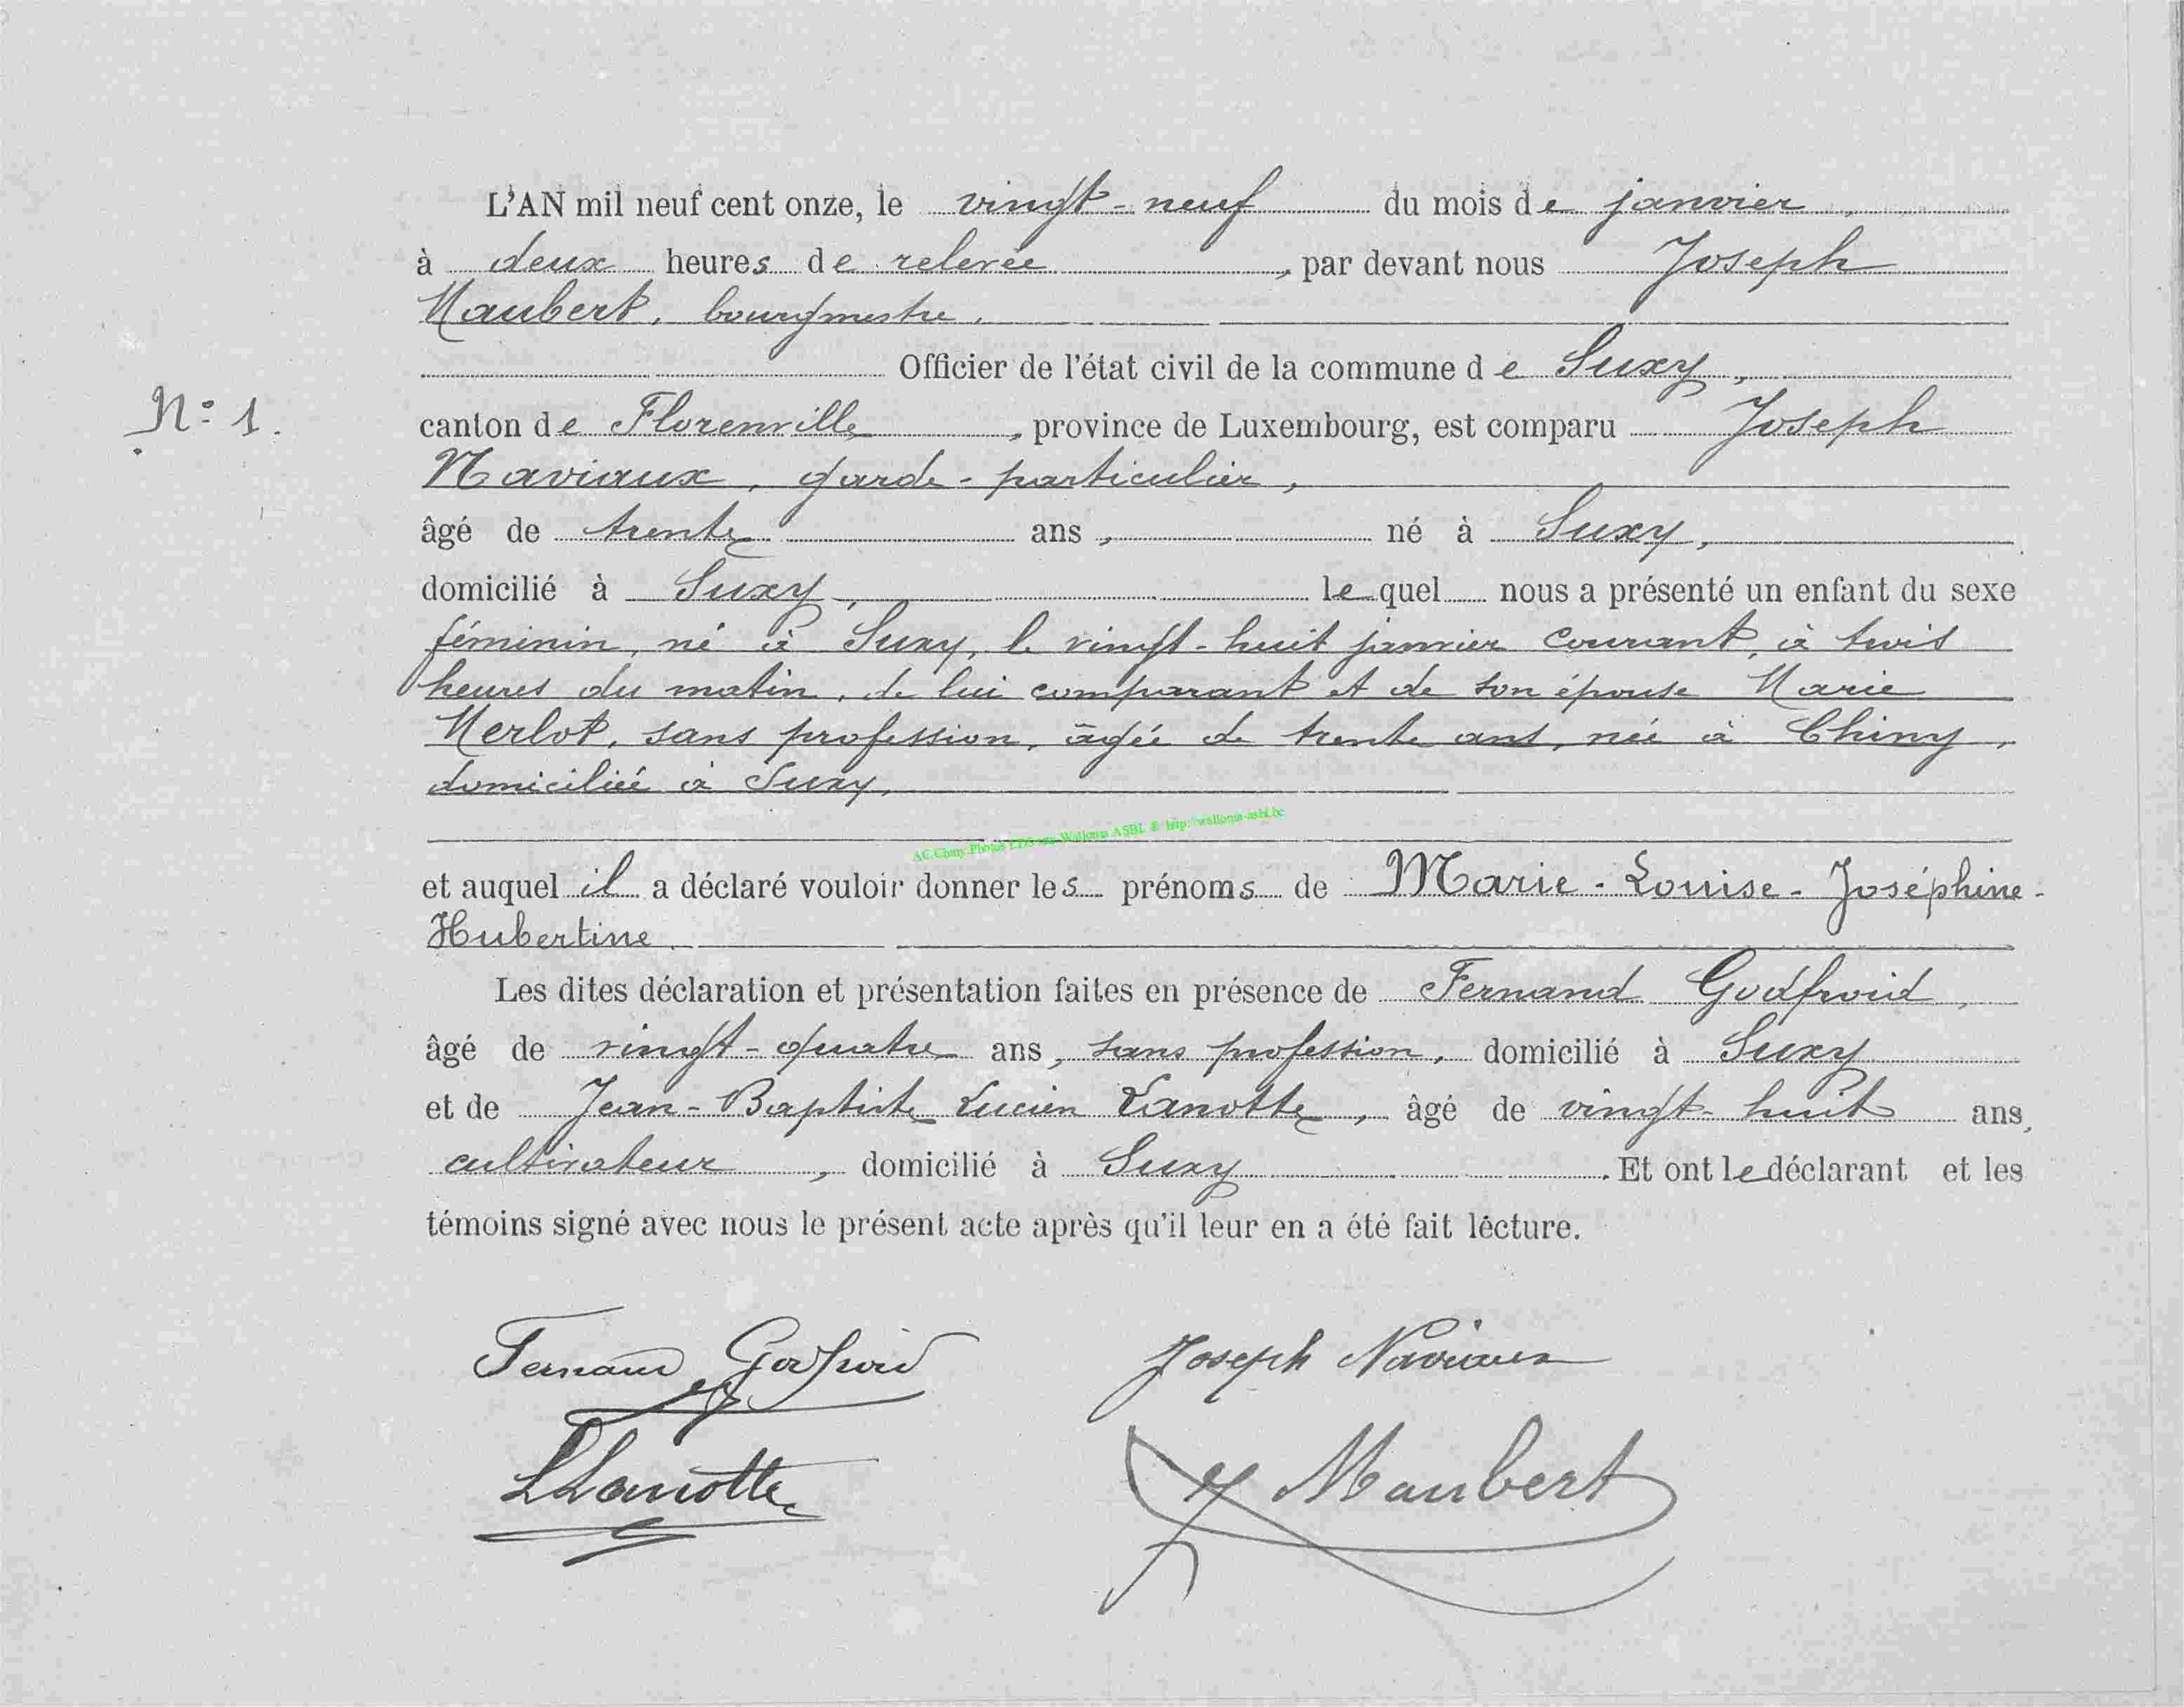 L'AN mil neuf cent onze, le vingt-neuf du mois de janvier,
à deux heures de relevée, par devant nous Joseph
Maubert, bourgmestre,
Officier de l'état civil de la commune de Suxy,
N° 1.
canton de Florenville, province de Luxembourg, est comparu Joseph
Naviaux, garde-particulier,
âgé de trente ans, né à Suxy,
domicilié à Suxy, lequel nous a présenté un enfant du sexe
féminin, né à Suxy, le vingt-huit janvier courant, à trois
heures du matin, de lui comparant et de son épouse Marie
Merlot, sans profession, âgée de trente ans, née à Chiny,
domiciliée à Suxy,
AC.Chiny Photos Wallonia ASBL © http://wallonia-asbl.be
et auquel il a déclaré vouloir donner les prénoms de Marie-Louise-Joséphine-
Hubertine.
Les dites déclaration et présentation faites en présence de Fernand Godfroid,
âgé de vingt-quatre ans, sans profession, domicilié à Suxy
et de Jean-Baptiste Lucien Lanotte, âgé de vingt-huit ans,
cultivateur, domicilié à Suxy. Et ont le déclarant et les
témoins signé avec nous le présent acte après qu'il leur en a été fait lecture.
Fernand Godfroid Joseph Naviaux
L Lanotte J Maubert